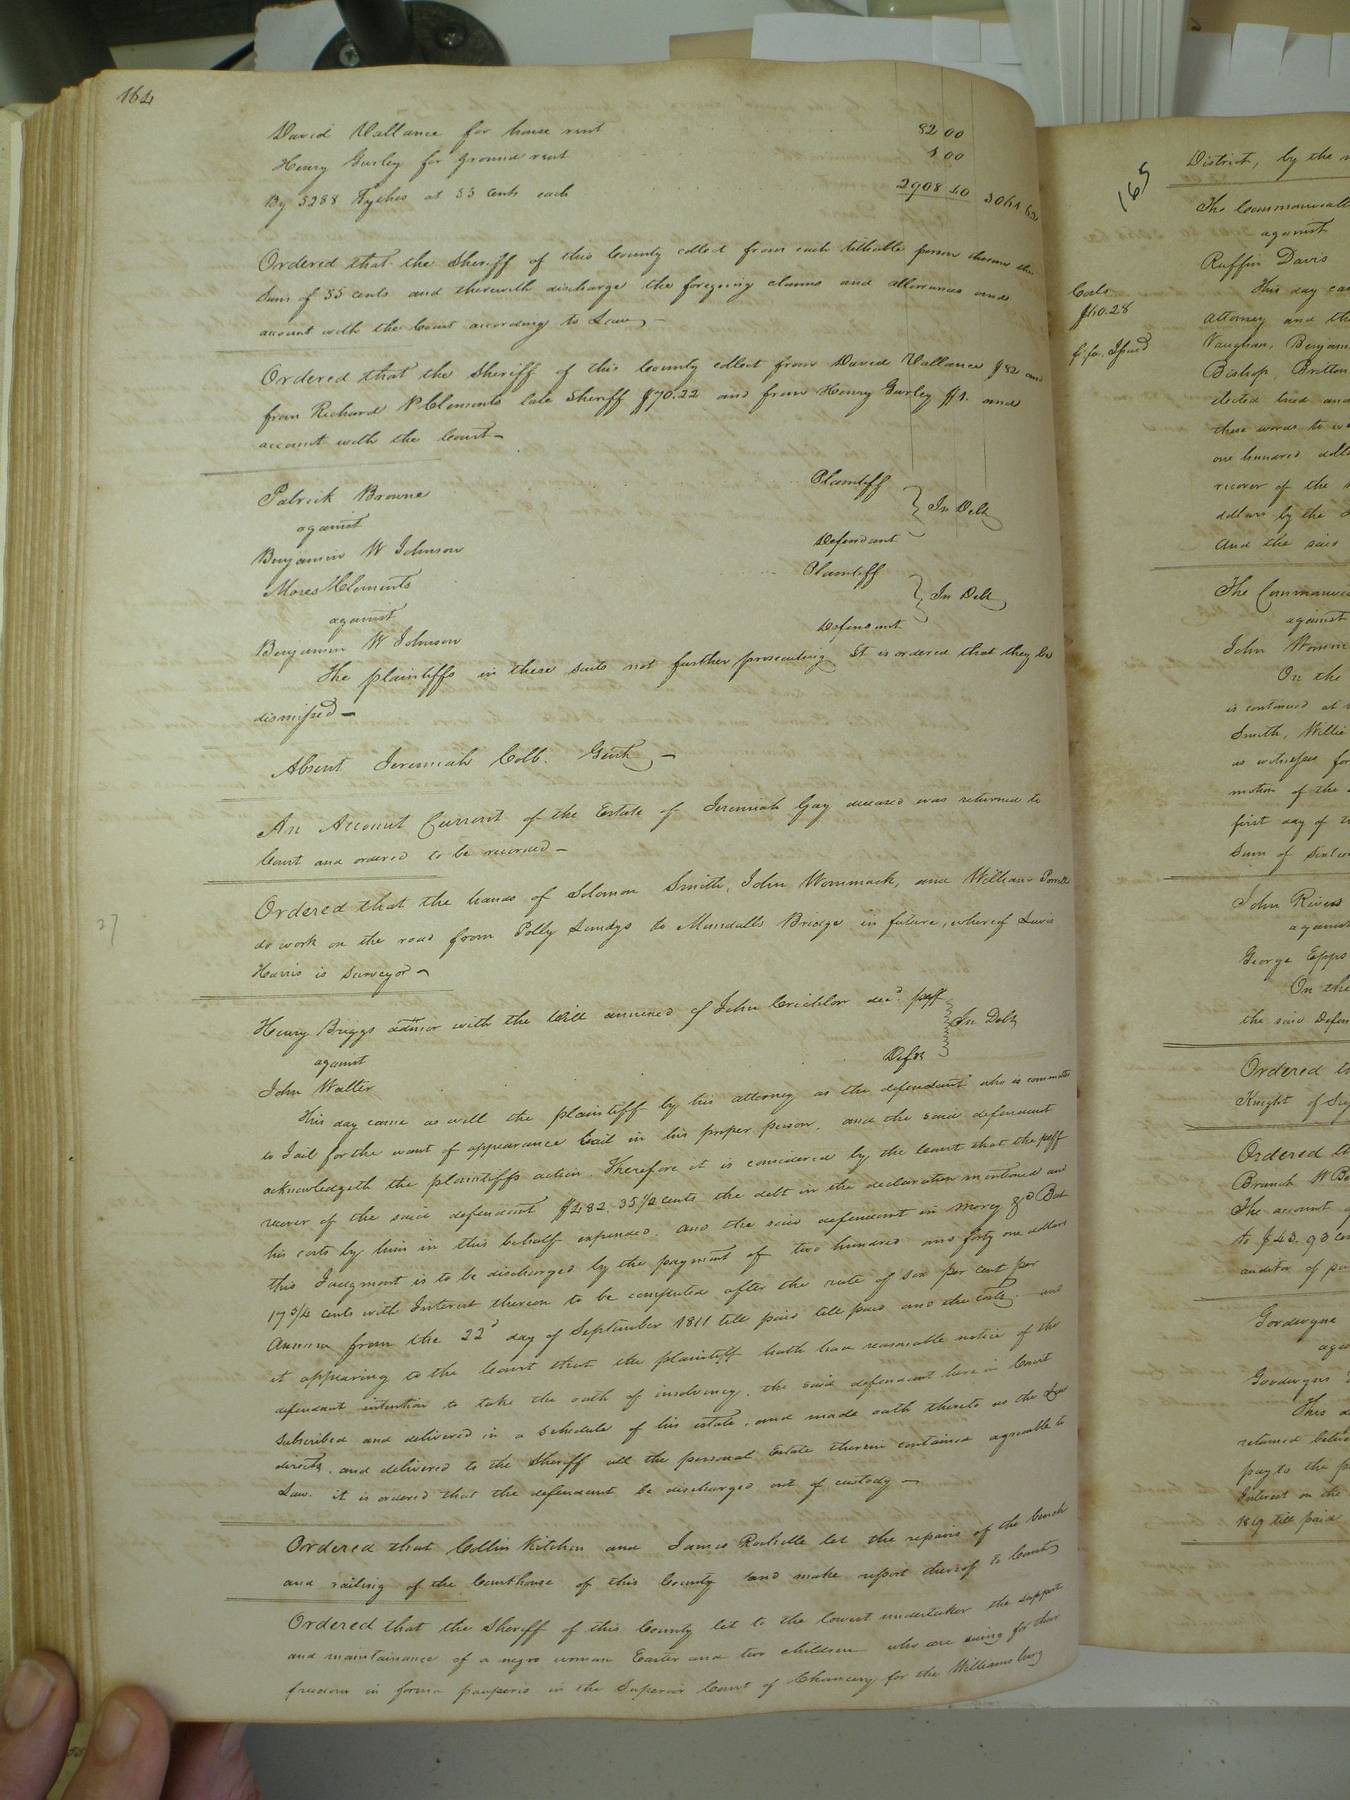 164
David Vallance for house rent 82 00
Henry Gurley for ground rent 1 00
By 5288 Tythes at 55 cents each 2908 40
Ordered that the Sheriff of this County collect from each tithable person therein the
Sum of 55 cents and therewith discharge the foregoing claims and allowances and
account with the Court according to Law
Ordered that the Sheriff of this County collect from David Vallance $82 and
from Richard P Clements late Sheriff $70.22 and from Henry Gurley $1. and
account with the Court
Patrick Browne Plaintiff
against In Debt
Benjamin W Johnson Defendant
Moses Clements Plaintiff
against In Debt
Benjamin W Johnson Defendant
The plaintiffs in these suits not further prosecuting It is ordered that they be
dismissed
Absent Jeremiah Cobb. Gent
An Account Current of the Estate of Jeremiah Gay deceased was returned to
Court and ordered to be recorded
27
Ordered that the hands of Solomon Smith, John Wommack, and William Powell
do work on the road from Polly Lundys to Mundalls Bridge in future, whereof Lewis
Harris is Surveyor
Henry Briggs admor with the Will annexed of John Crichlow decd. plff
against In Debt
John Walter Deft
This day came as well the plaintiff by his attorney as the defendant who is committed
to Jail for the want of appearance bail in his proper person, and the said defendant
acknowledgeth the plaintiffs action Therefore it is considered by the Court that the plff
recover of the said defendant $482.35 1/2 cents the debt in the declaration mentioned and
his costs by him in this behalf expended. and the said defendant in mercy &c But
this Judgment is to be discharged by the payment of two hundred and forty one dollars
17 3/4 cents with Interest thereon to be computed after the rate of six per cent per
annum from the 22d day of September 1811 till paid till paid and the costs. and
it appearing to the Court that the plaintiff hath had reasonable notice of the
defendant intention to take the oath of insolvency, the said defendant here in Court
subscribed and delivered in a schedule of his estate, and made oath thereto as the Law
directs, and delivered to the Sheriff all the personal Estate therein contained agreable to
Law. it is ordered that the defendant be discharged out of custody
Ordered that Collin Kitchen and James Rochelle let the repairs of the bench
and railing of the Courthouse of this County and make report thereof to Court
Ordered that the Sheriff of this County let to the lowest undertaker the support
and maintainance of a negro woman Easter and two children who are suing for their
freedom in forma pauperis in the Superior Court of Chancery for the Williamsburg
165
District, by the
The Commonwealth
against
Ruffin Davis
Costs
$10.28
fi fa. Issued
This day
attorney and the
Vaughan, Benjam
Bishop, Britton
elected tried and
these words to w
one hundred doll
recover of the
dollars by the
And the said
The Commonwe
against
John Womm
On the
is continued
Smith, Willie
as witnesses for
motion of the
first day of
Sum of
John Rivers
against
George Epps
On the
the said Defen
Ordered th
Knight of
Ordered th
Branch W
The account
to $43.93 cen
auditor of
Goodwynn
aga
Goodwyns
This d
returned
pay to the p
Interest on the
1819 till paid